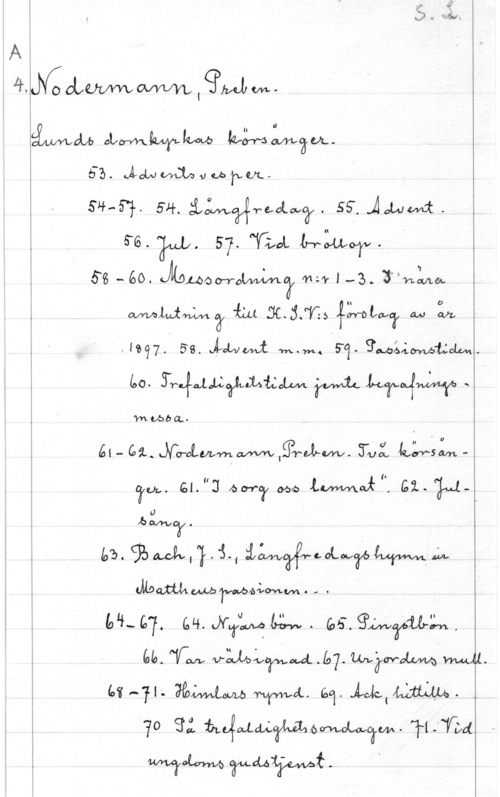 S. L.
A
4. Nodermann, Preben.
Lunds domkyrkas körsånger.
53. Adventsvesper.
54-57. 54. Långfredag. 55. Advent.
56. Jul. 57. Vid bröllop.
58-60. Messordning n:r 1-3. I nära
anslutning till K. J. V:s förslag av år
1897. 58. Advent m.m. 59. Passionstiden.
60. Trefaldighetstiden jemte begrafnings-
messa.
61-62. Nodermann, Preben. Två körsån-
ger. 61. "I sorg oss lemnat". 62. Jul-
sång.
63. Bach, J. S., Långfredagshymn ur
Mattheuspassionen...
64-67. 64. Nyårsbön. 65. Pingstbön.
66. Var välsignad. 67. Ur jordens mull.
68-71. Himlars rymd. 69. Ack, hittills.
70 På trefaldighetssondagen. 71. Vid
ungdomsgudstjenst.